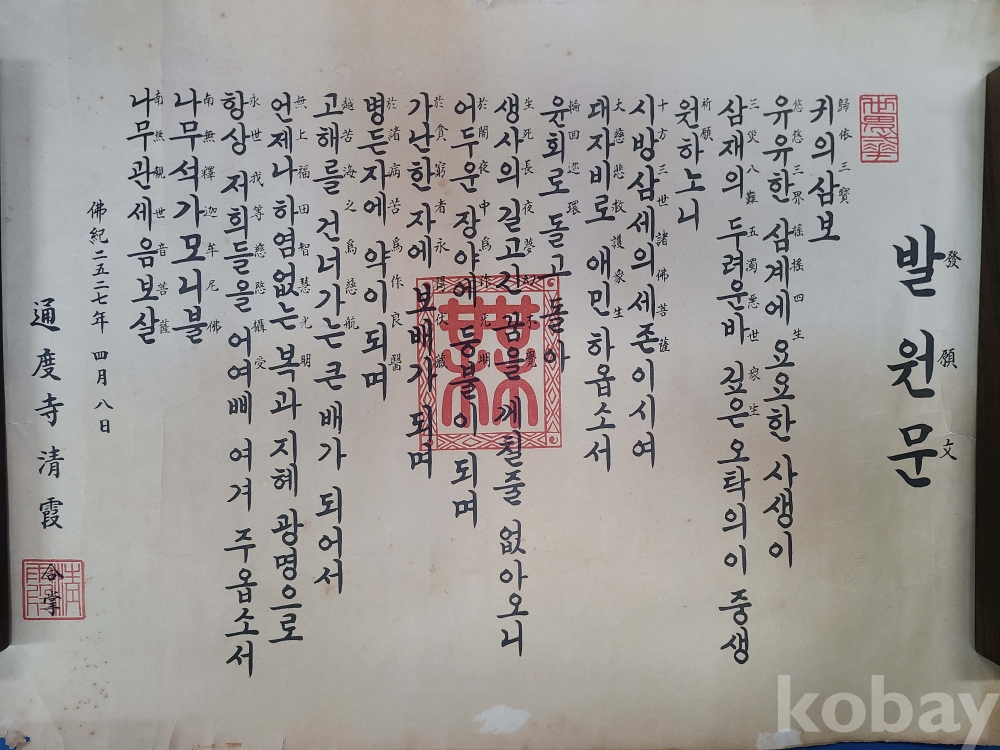 발원문
發願文
귀의삼보
歸依三寶
유유한 삼계에 요요한 사생이
悠悠三界 搖搖四生
삼재의 두려운바 깊은 오탁의 이 중생
三災八難 五濁惡世 衆生
원하노니
祈願
시방삼세의 세존이시여
十方三世諸佛菩薩
대자비로 애민하옵소서
大慈悲救護衆生
윤회로 돌고 돌아
輪回巡環
생사의 길고긴 꿈을 깨칠줄 없아오니
生死長夜夢幻未覺
어두운 장야에 등불이 되며
於闇夜中爲作光明
가난한 자에 보배가 되며
於貧窮者永得伏藏
병든자에 약이 되며
於諸病苦爲作良醫
고해를 건너가는 큰 배가 되어서
越苦海之爲慈航
언제나 하염없는 복과 지혜 광명으로
無上福田智慧光明
항상 저희들을 어여삐 여겨 주옵소서
永世我等慈愍攝受
나무석가모니불
南無釋迦牟尼佛
나무관세음보살
南無觀世音菩薩
佛紀二五二七年 四月 八日
通度寺 清霞
合掌
kobay